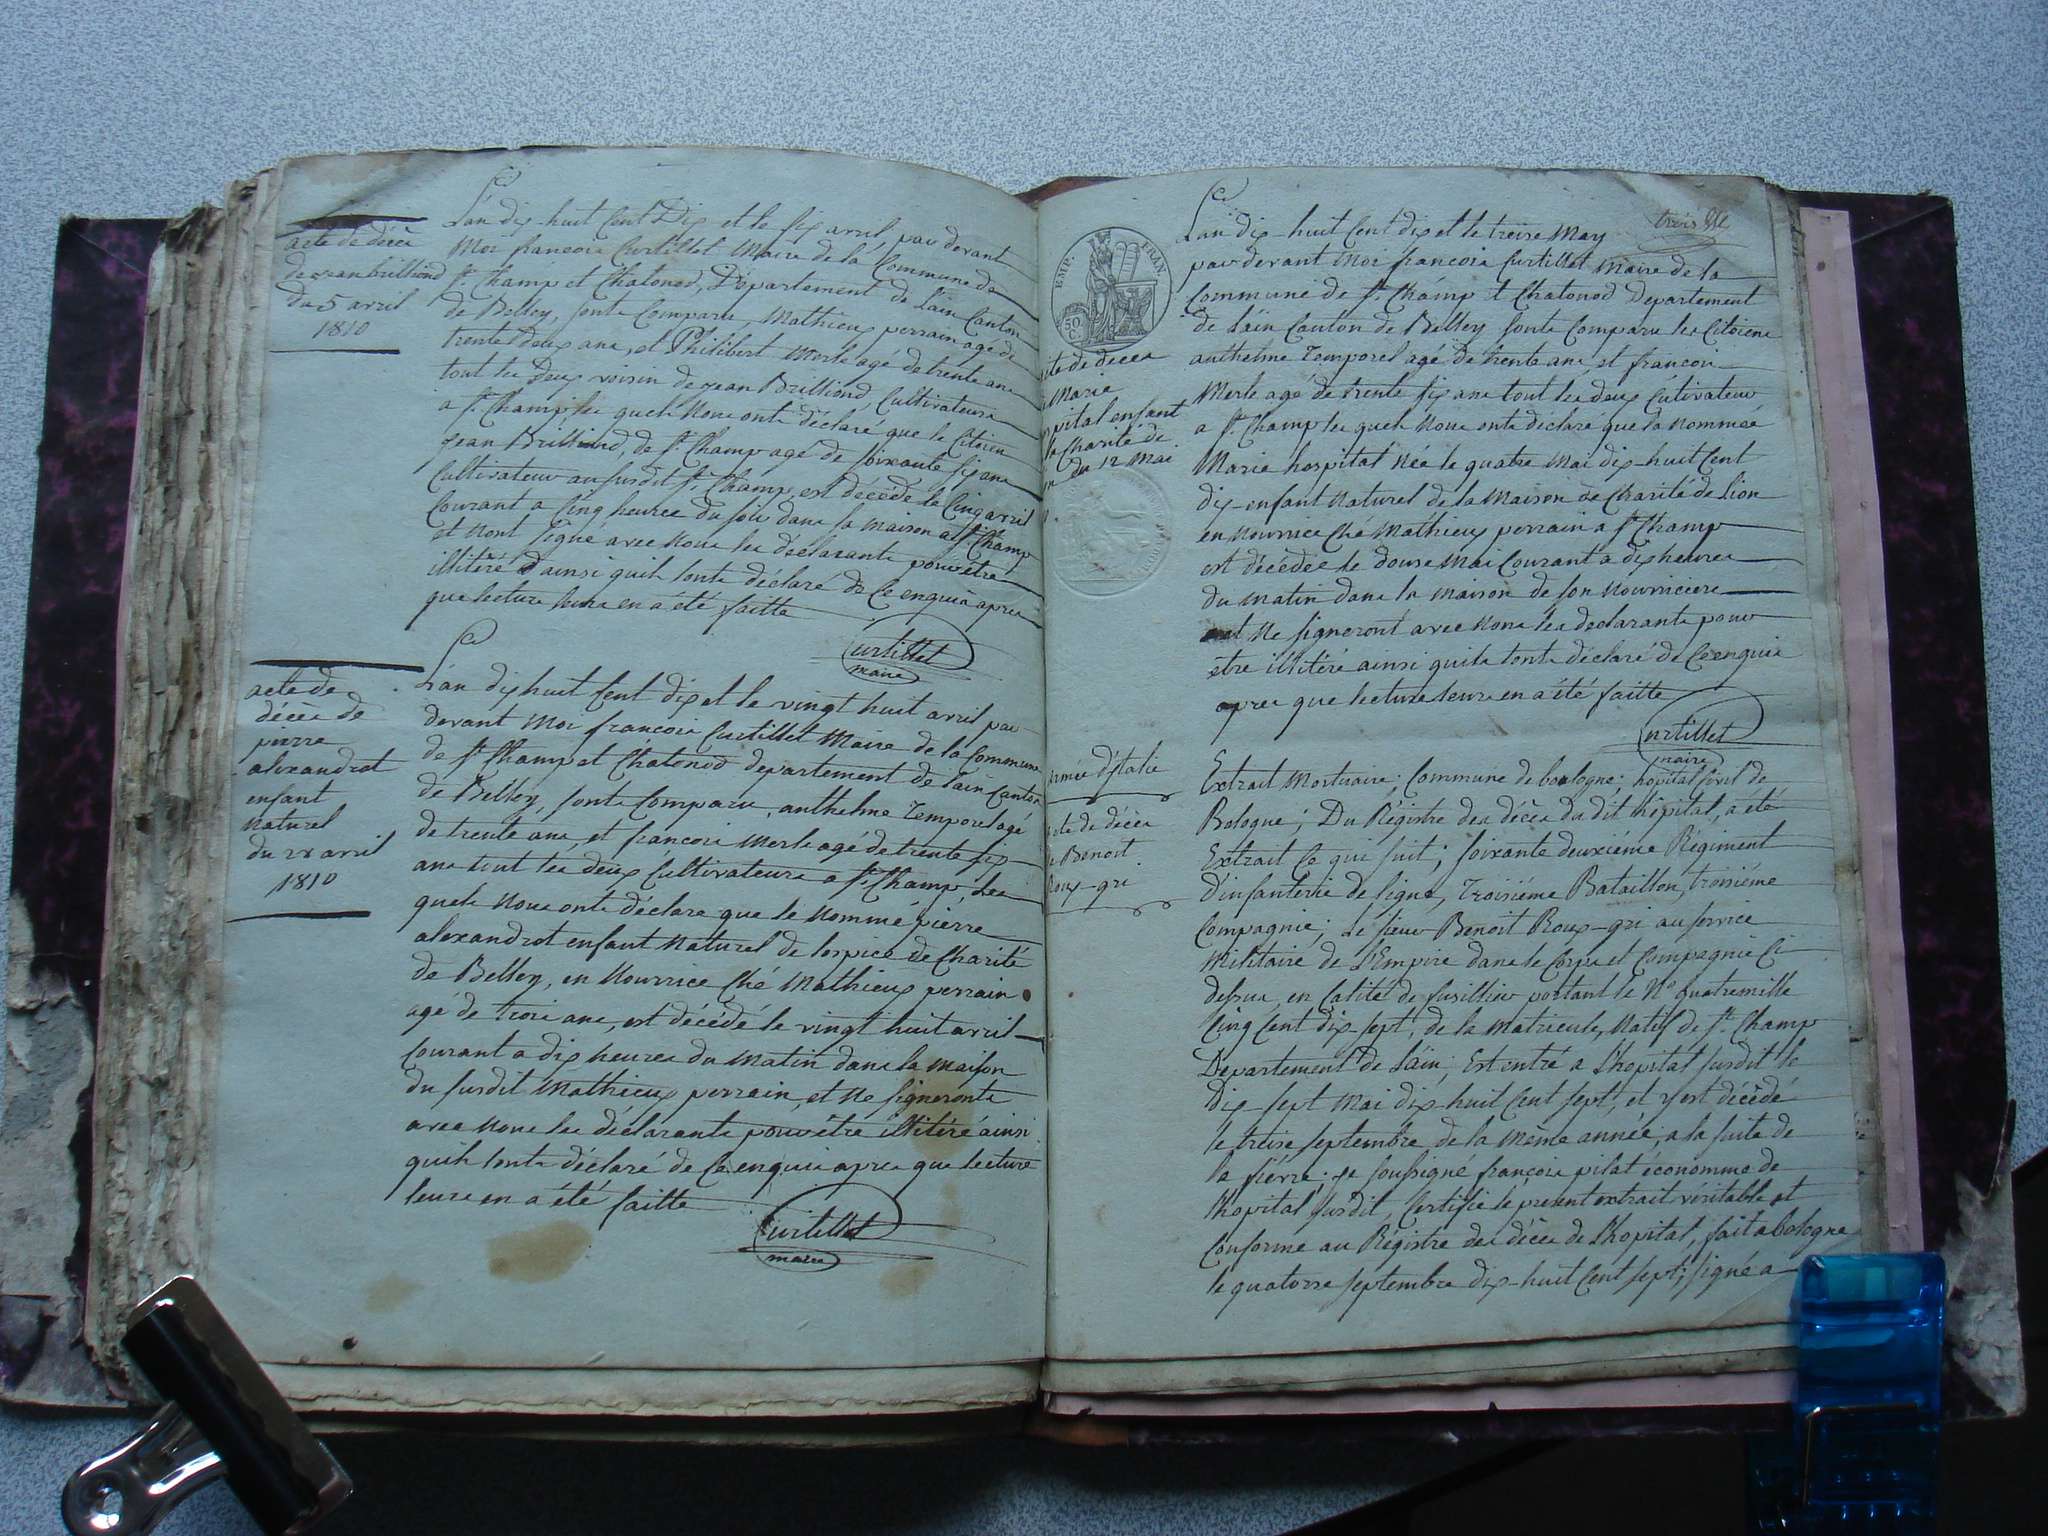 acte de décès
de jean brilliond
du 5 avril
1810
L'an dix-huit Cent Dix et le six avril par devant
Moi françois Curtillet Maire de la Commune de
St Champ et Chatonod, Département de Lain Canton
de Belley, sonts Comparus, Mathieux perrain agé de
trente Deux ans, et Philibert Merle agé de trente ans
tout les Deux voisin de jean Brilliond, Cultivateurs
a St Champ les quels Nous onts déclaré que le Citoien
jean Brilliond, de St Champ agé de soixante six ans
Cultivateur au susdit St Champ, est décédé le Cinq avril
Courant a Cinq heures du soir dans sa maison a St Champ
et n'ont signé avec nous les déclarants pour être
illitéré ainsi quils lonts déclaré de Ce enquis apres
que lecture leurs en a été faitte
Curtillet
maire
acte de
décès de
pierre
alexandret
enfant
naturel
du 28 avril
1810
L'an dix huit Cent dix et le vingt huit avril par
devant Moi françois Curtillet Maire de la Commune
de St Champ et Chatonod département de Lain Canton
de Belley, sonts Comparus, anthelme Temporel agé
de trente ans, et françois Merle agé de trente six
ans tout les deux Cultivateurs a St Champ, Les
quels Nous onts déclaré que le nommé pierre
alexandret enfant naturel de lospice de Charité
de Belley, en Nourrice Ché Mathieux perrain
agé de trois ans, est décédé le vingt huit avril
Courant a dix heures du Matin dans la maison
du susdit Mathieux perrain, et Ne signeronts
avec nous les déclarants pour être illitéré ainsi
quils lonts déclaré de Ce enquis apres que lecture
leurs en a été faitte
Curtillet
maire
EMP. FRAN.
50 C.
acte de décès
Marie
hospital enfant
la Charité de
du 12 Mai
L'an dix-huit Cent dix et le treise May
par devant Moi françois Curtillet Maire de la
Commune de St Champ et Chatonod Département
de Lain Canton de Belley sonts Comparus les Citoiens
anthelme Temporel agé de trente ans, et françois
Merle agé de trente six ans tout les deux Cutivateur
a St Champ les quels Nous onts déclaré que la nommée
Marie hospital Née le quatre Mai dix-huit Cent
dix-enfant Naturel de la Maison de Charité de Lion
en Nourrice Ché Mathieux perrain a St Champ
est décédée le douse Mai Courant a dix heures
du Matin dans la Maison de son Nourriciere
et Ne signeront avec nous les déclarants pour
être illitéré ainsi quils lonts déclaré de Ce enquis
apres que lecture leurs en a été faitte
Curtillet
maire
armée d'Italie
acte de décès
Benoit
Roux-gri
Extrait Mortuaire; Commune de boulogne; hopital Civil de
Bologne; Du Régistre des décès du dit hôpital, a été
Extrait Ce qui suit; soixante deuxiéme Régiment
D'infanterie de ligne, troisiéme Bataillon, troisiéme
Compagnie; Le sieur Benoit Roux-gri au service
Militaire de L'Empire dans le Corps et Compagnie Ci
dessus, en Calité de fusillier portant le N° quatremille
Cinq Cent dix-sept, de la Matricule, Natif de St Champ
Département de Lain; Est entré a L'hopital susdit le
Dix-sept Mai dix-huit Cent sept, et y est décédé
le treise septembre de la même année, a la suite de
la fiévre; je soussigné françois pilat économme de
L'hopital susdit, Certifie le présent extrait véritable et
Conforme au Régistre des décès de L'hopital, fait a bologne
le quatorse septembre dix-huit Cent sept, signé a